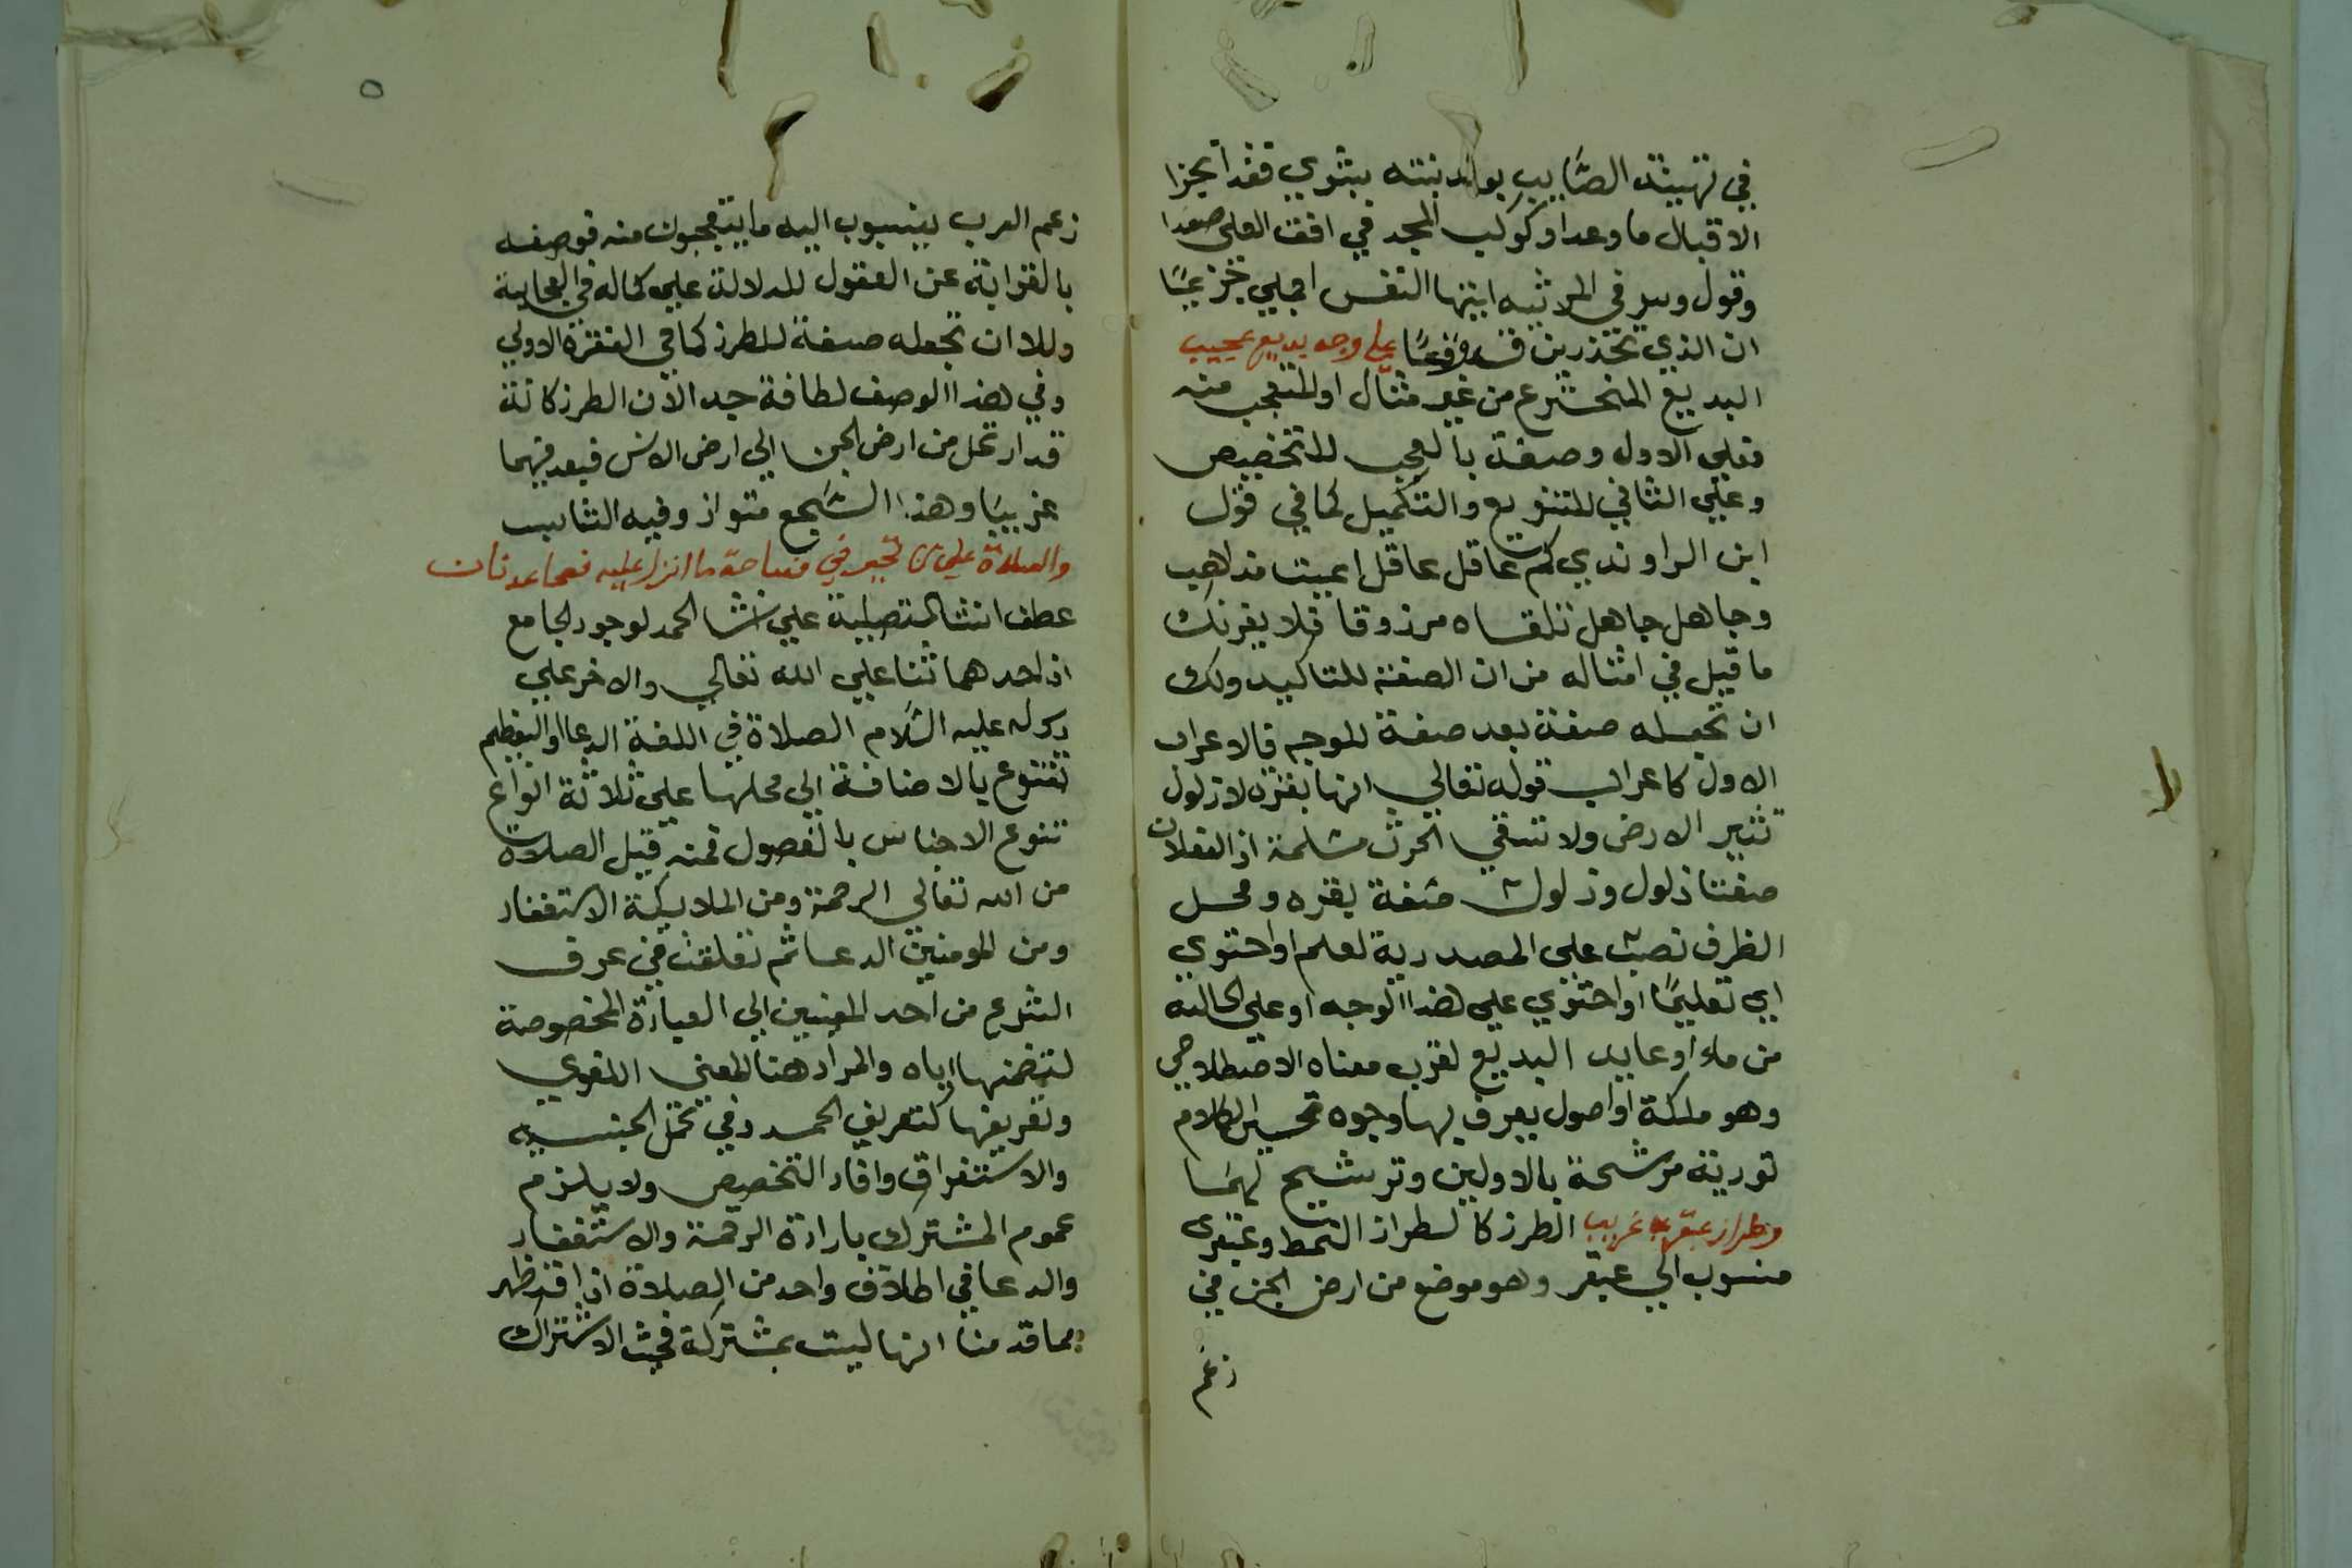 في تهنية الصاحب بولد بنته بشري فقد انجزا
الاقبال ما وعدا وكوكب المجد في افق العلي صعدا
وقول وس في المرثيه ايتها النفس اجملي جزعًا
ان الذي تحذرين قد وقعًا علي وجه بديع عجيب
البديع المخترع من غير مثال او المتعجب منه
فعلي الاول وصفه بالعجب للتخصيص
وعلي الثاني للتنويع والتكميل كما في قول
ابن الراوندي كم عاقل عاقل اعيت مذاهبه
وجاهل جاهل تلقاه مرزوقا فلا يغرنك
ما قيل في امثاله من ان الصفة للتاكيد ولك
ان تجعله صفة بعد صفة للوجه فالاعراب
الاول كاعراب قوله تعالي انها بقره لا ذلول
تثير الارض ولا تسقي الحرث مسلمة اذ الفعلان
صفتا ذلول وذلول صفة بقره ومحل
الظرف نصب علي المصدرية لعلم او احتوي
اي تعليمًا او احتوي علي هذا الوجه او علي الحاليه
من ماء او عايد البديع لقرب معناه الاصطلاحي
وهو ملكة او اصول يعرف بها وجوه تحسين الكلام
تورية مرشحة بالاولين وترشيح لهما
وطراز عبقري غريب الطرز كالطراز النمط وعبقري
منسوب الي عبقر وهو موضع من ارض الجن في
زعم
زعم العرب ينسبون اليه ما يتعجبون منه فوصفه
بالغرابة عن العقول للدلالة علي كماله في العجابية
وللا ان تجعله صفة للطرز كما في الفقرة الاولي
وفي هذا الوصف لطافة جدا لان الطرز كانه
قد ارتحل من ارض الجن الي ارض الانس فيعد فيهما
غريبًا وهذا السجع متواز وفيه التناسب
والصلاة علي من تحير في فصاحة ما انزل عليه فصحا عدنان
عطف انشا التصلية علي انشا الحمد لوجود الجامع
اذ احدهما ثنا علي الله تعالي والاخر علي
رسوله عليه السلام الصلاة في اللغة الدعا او التعظيم
تتنوع بالاضافة الي محلها علي ثلاثة انواع
تنوع الاجناس بالفصول فمنه قيل الصلاة
من الله تعالي الرحمة ومن الملايكة الاستغفار
ومن المومنين الدعا ثم نقلت في عرف
الشرع من احد المعنيين الي العبادة المخصوصة
لتضمنها اياه والمراد هنا المعني اللغوي
وتعريفها كتعريف الحمد في تحمل الجنسيه
والاستغراق وافاد التخصيص ولا يلزم
عموم المشترك بارادة الرحمة والاستغفار
والدعا في اطلاق واحد من الصلاة اذ قد ظهر
بما قدمنا انها ليست بمشتركة فحيث الاشتراك